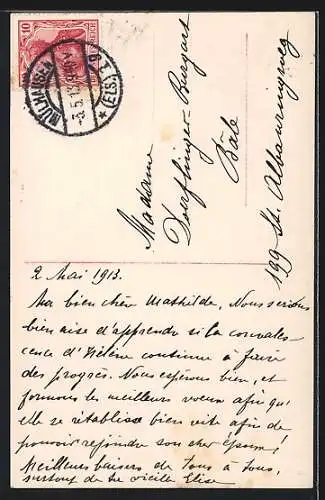 10
REICH
MÜLHAUSEN
(ELS.)
-3.5.13.
Madame
Dorflinger-Bugart
Bâle
199 St. Albanringweg
2 Mai 1913.
Ma bien chère Mathilde, Nous serions
bien aise d'apprendre si la convales-
cence d'Hélène continue à faire
des progrès. Nous espérons bien, et
formons les meilleurs voeux afin qu'
elle se rétablisse bien vite afin de
pouvoir rejoindre son cher époux!
Meilleurs baisers de tous à tous,
surtout de ta vieille Elise